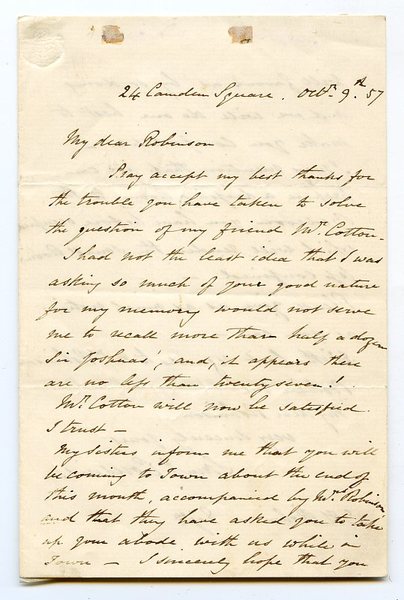 24 Camden Square. Octr. 9th. 57
My dear Robinson
Pray accept my best thanks for
the trouble you have taken to solve
the question of my friend Mr. Cotton.
I had not the least idea that I was
asking so much of your good nature
for my memory would not serve
me to recall more than half a dozen
Sir Joshuas', and, it appears there
are no less than twenty seven!
Mr. Cotton will now be satisfied
I trust —
My sisters inform me that you will
be coming to Town about the end of
this month, accompanied by Mrs. Robinson,
and that they have asked you to take
up your abode with us while in
Town — I sincerely hope that you